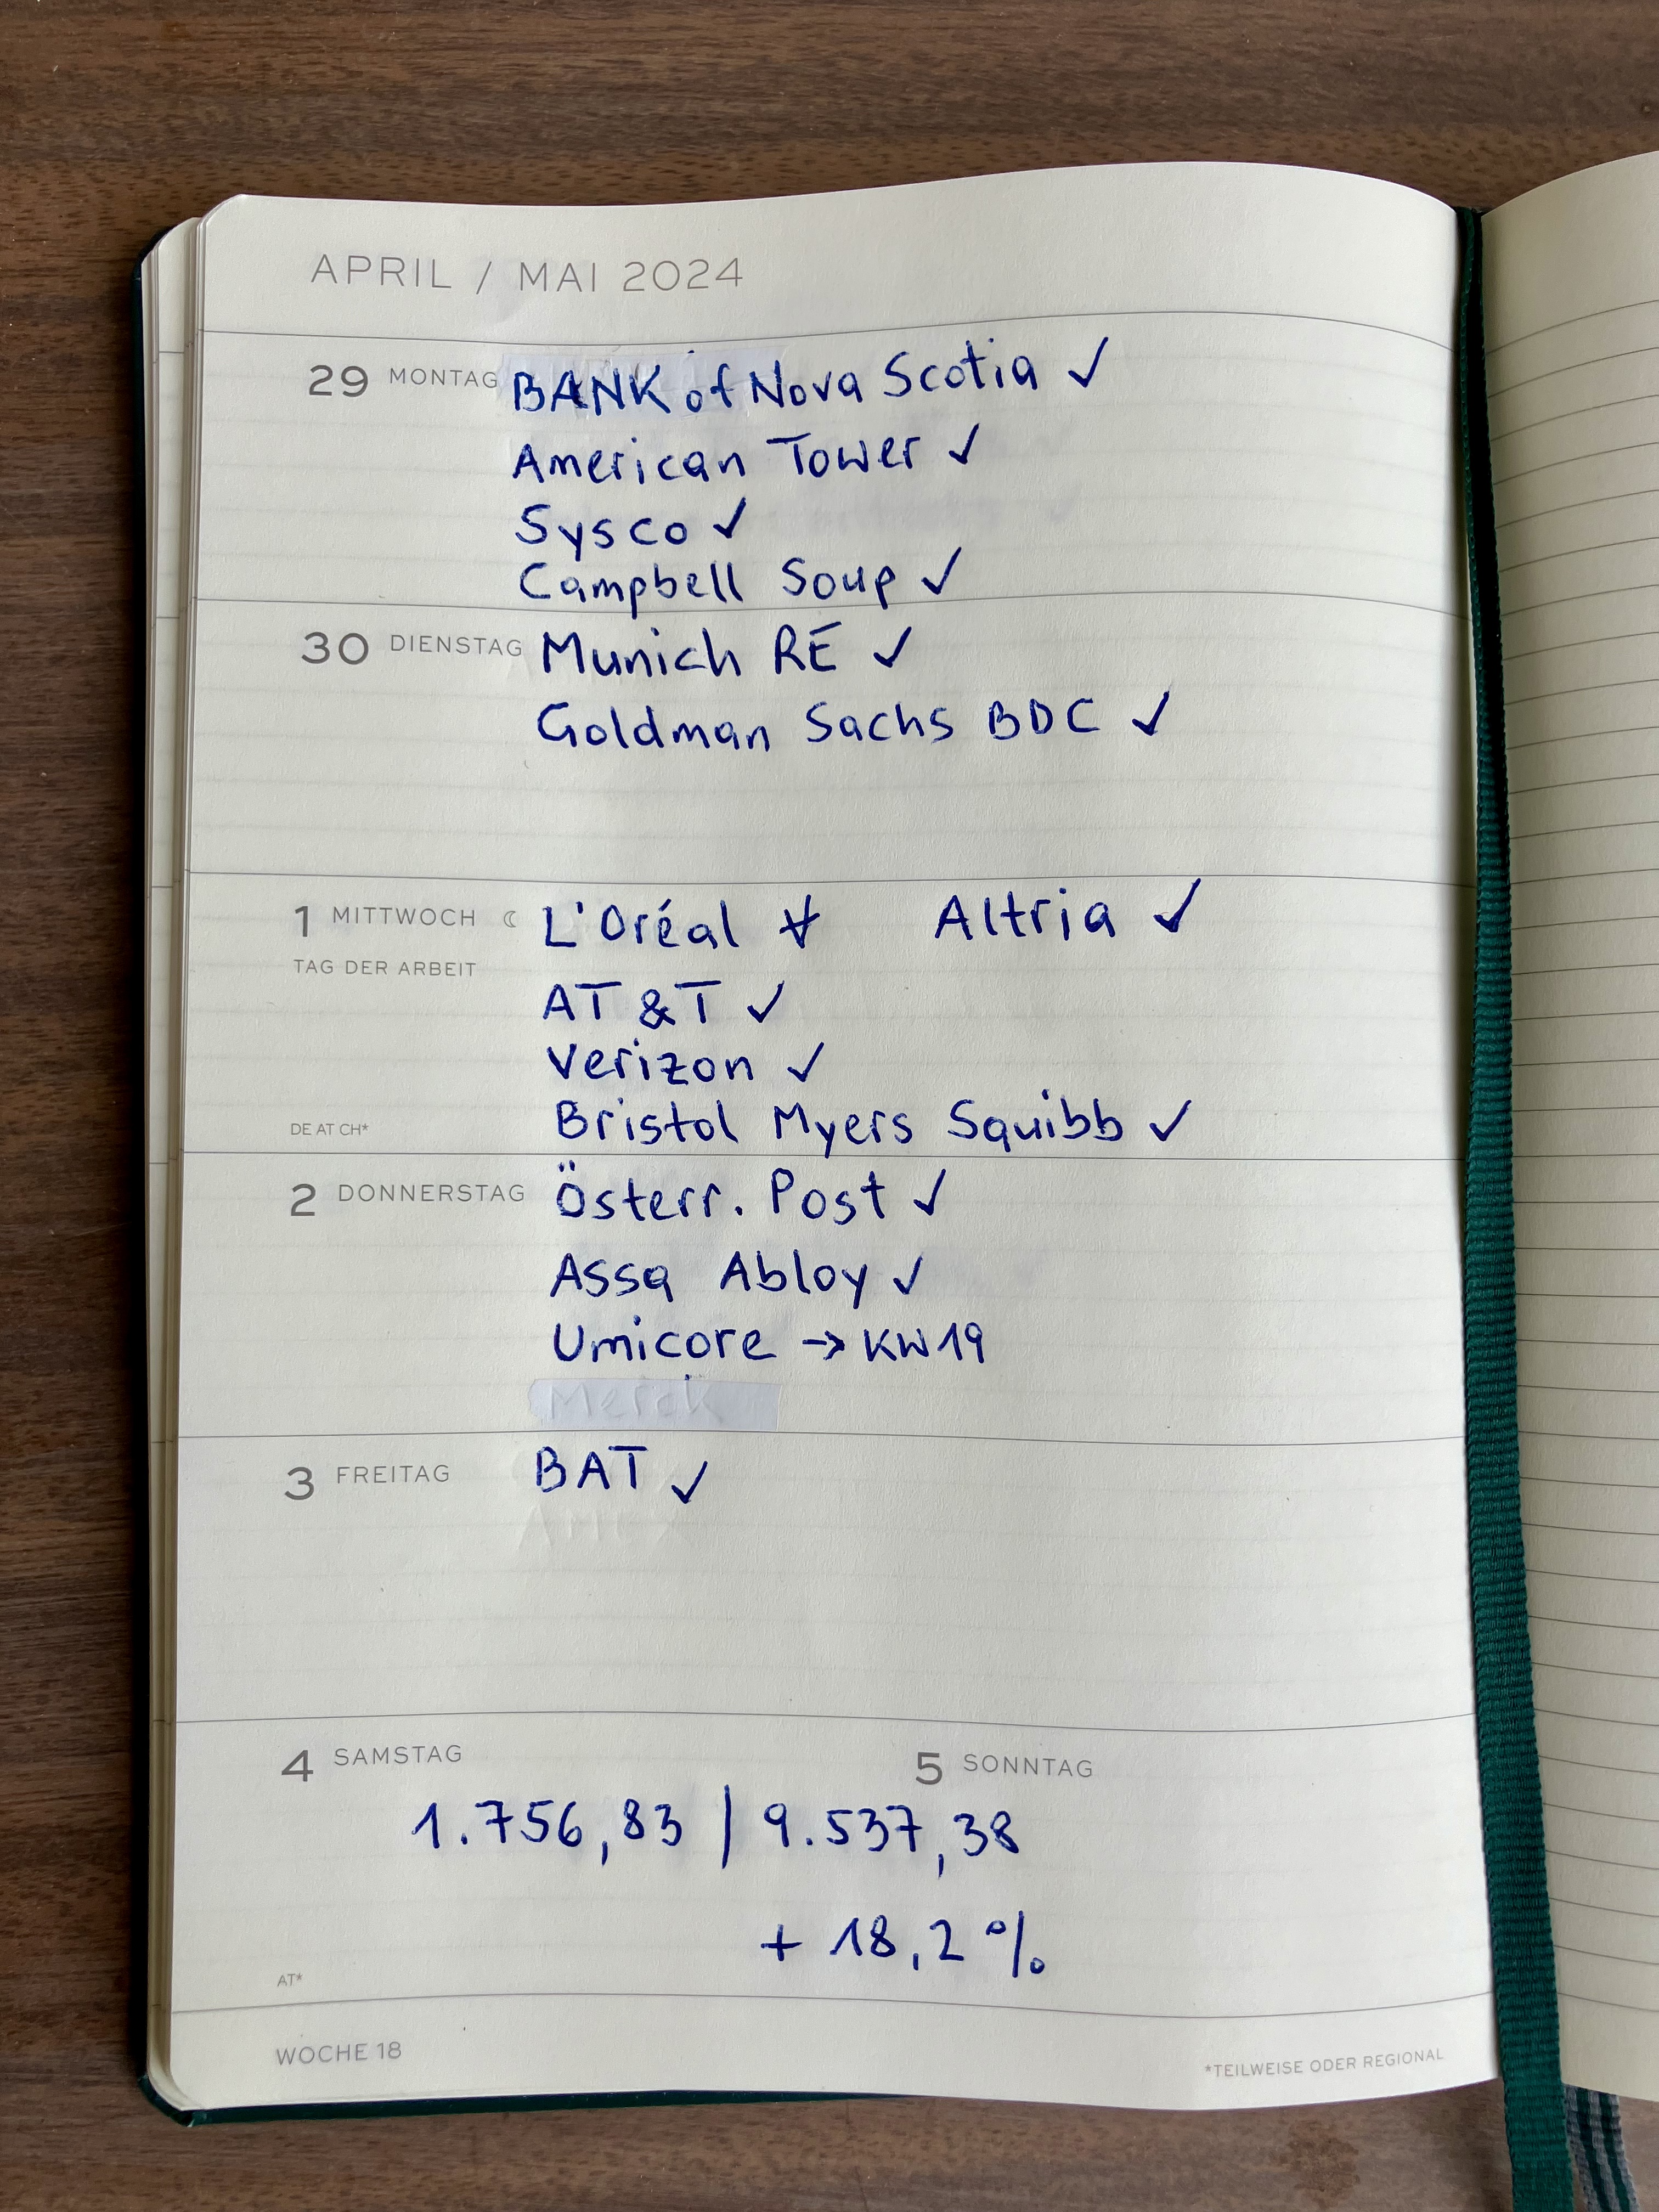 APRIL / MAI 2024
29 MONTAG BANK of Nova Scotia ✓
American Tower ✓
Sysco ✓
Campbell Soup ✓
30 DIENSTAG Munich RE ✓
Goldman Sachs BDC ✓
1 MITTWOCH L'Oréal ✓ Altria ✓
TAG DER ARBEIT
AT&T ✓
Verizon ✓
DE AT CH* Bristol Myers Squibb ✓
2 DONNERSTAG Österr. Post ✓
Assa Abloy ✓
Umicore → KW19
Merck
3 FREITAG BAT ✓
4 SAMSTAG 5 SONNTAG
1.756,83 | 9.537,38
+ 18,2 %
AT*
WOCHE 18
*TEILWEISE ODER REGIONAL